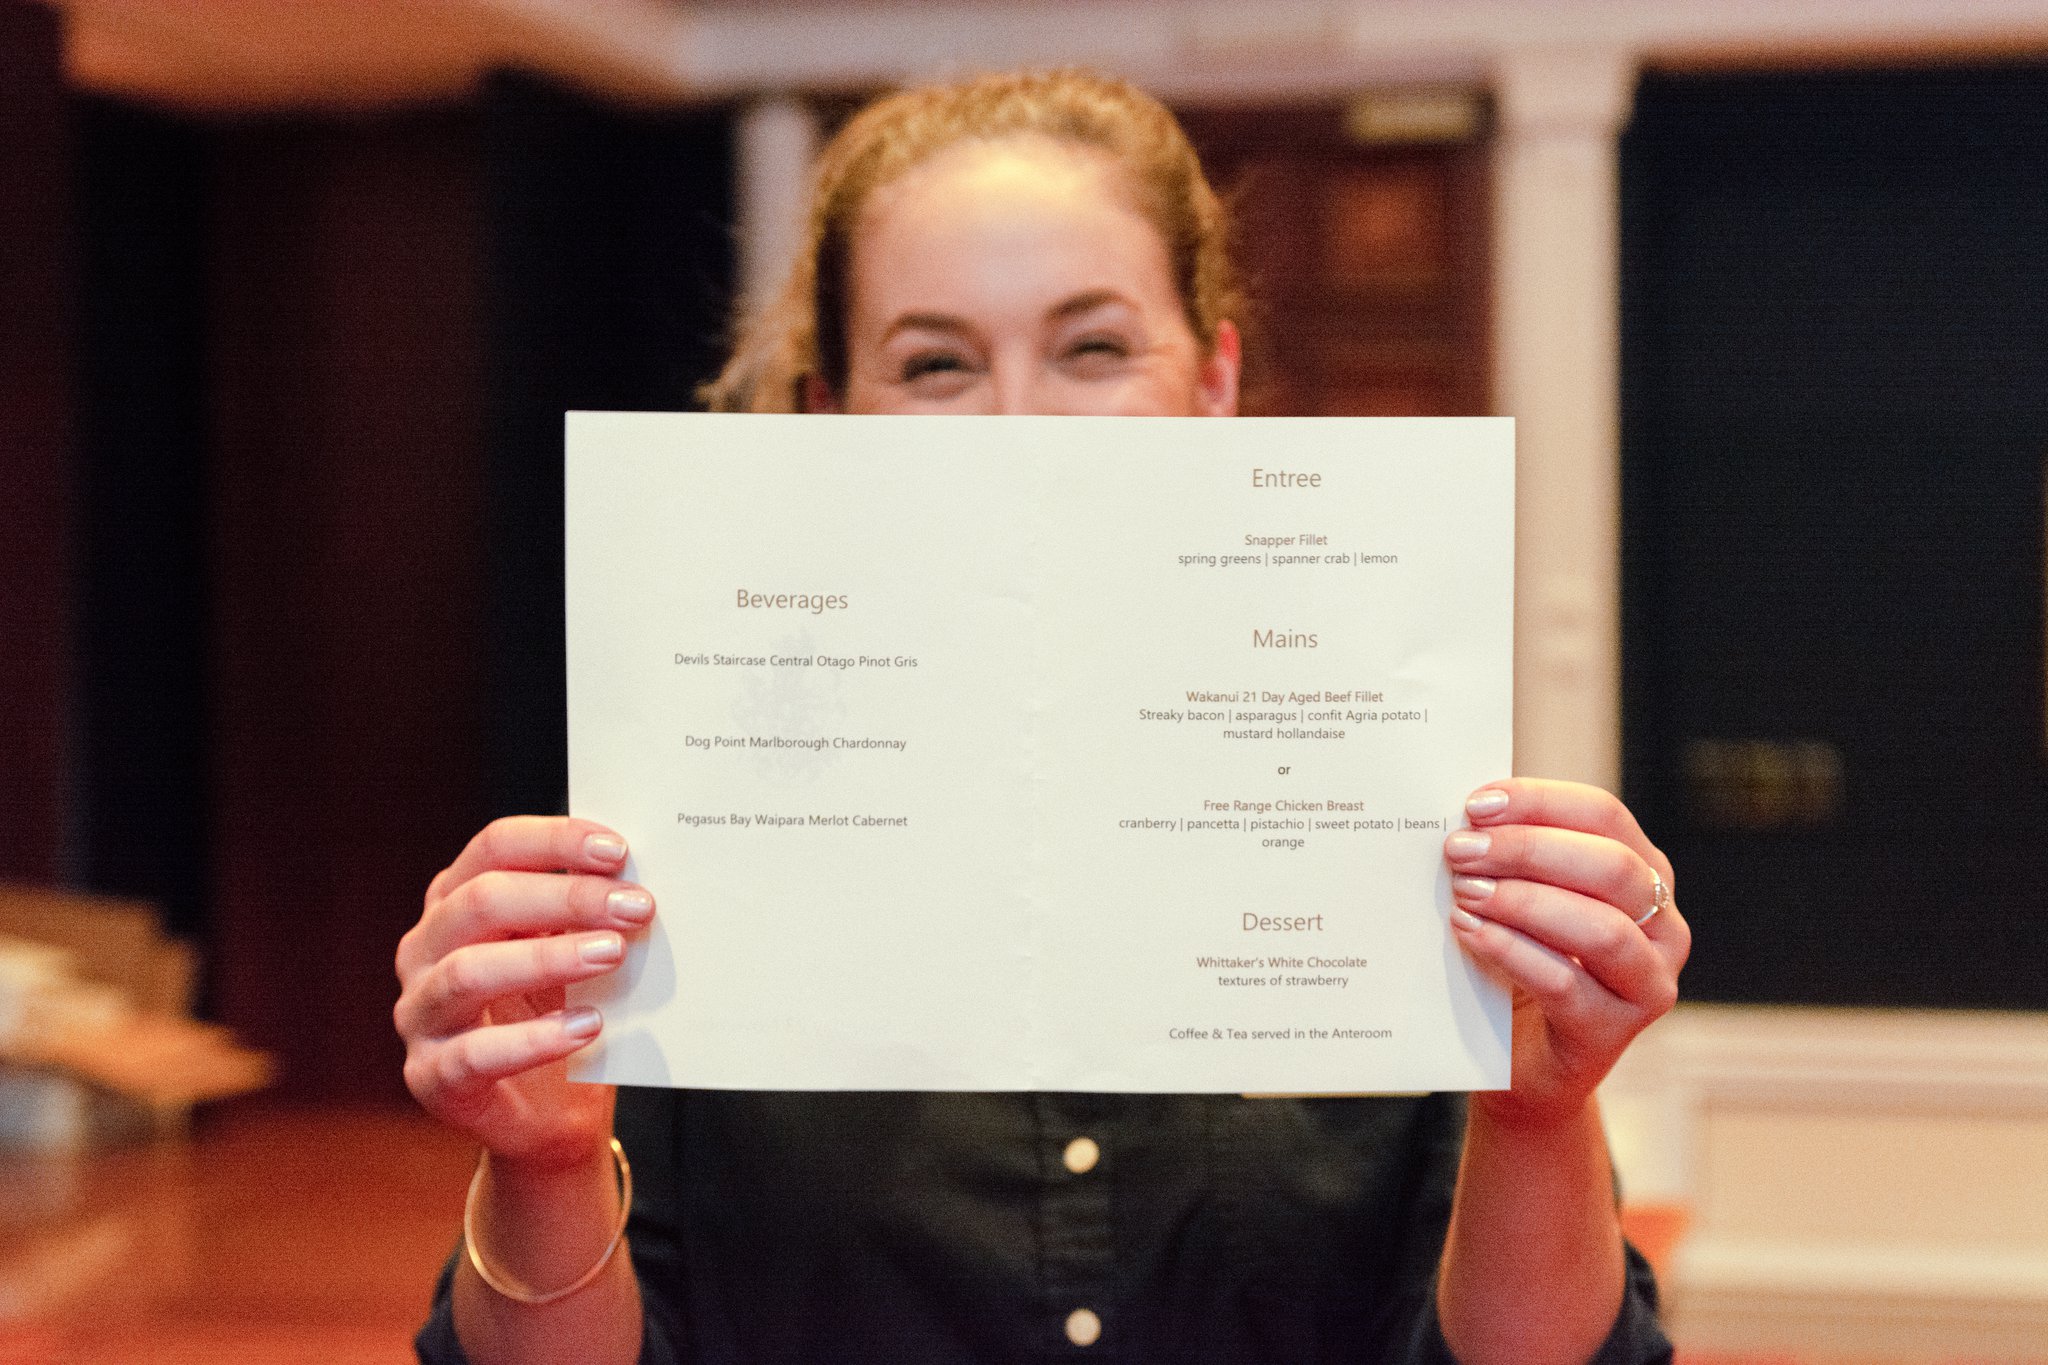 Beverages
Devils Staircase Central Otago Pinot Gris
Dog Point Marlborough Chardonnay
Pegasus Bay Waipara Merlot Cabernet
Entree
Snapper Fillet
spring greens | spanner crab | lemon
Mains
Wakanui 21 Day Aged Beef Fillet
Streaky bacon | asparagus | confit Agria potato |
mustard hollandaise
or
Free Range Chicken Breast
cranberry | pancetta | pistachio | sweet potato | beans |
orange
Dessert
Whittaker's White Chocolate
textures of strawberry
Coffee & Tea served in the Anteroom